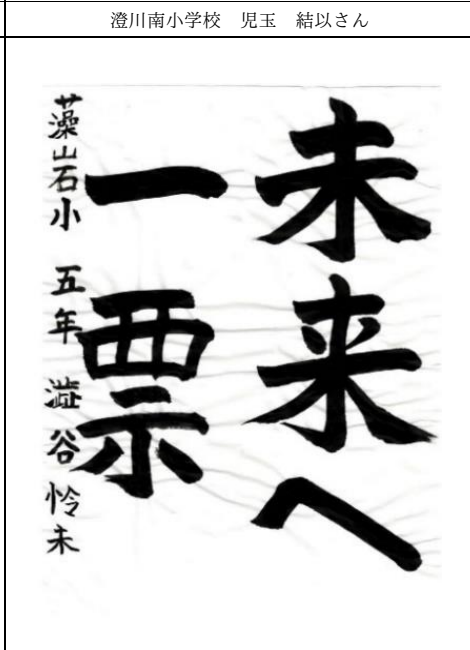 澄川南小学校　児玉　結以さん
未来へ
一票
藻山石小 五年 澁谷怜未